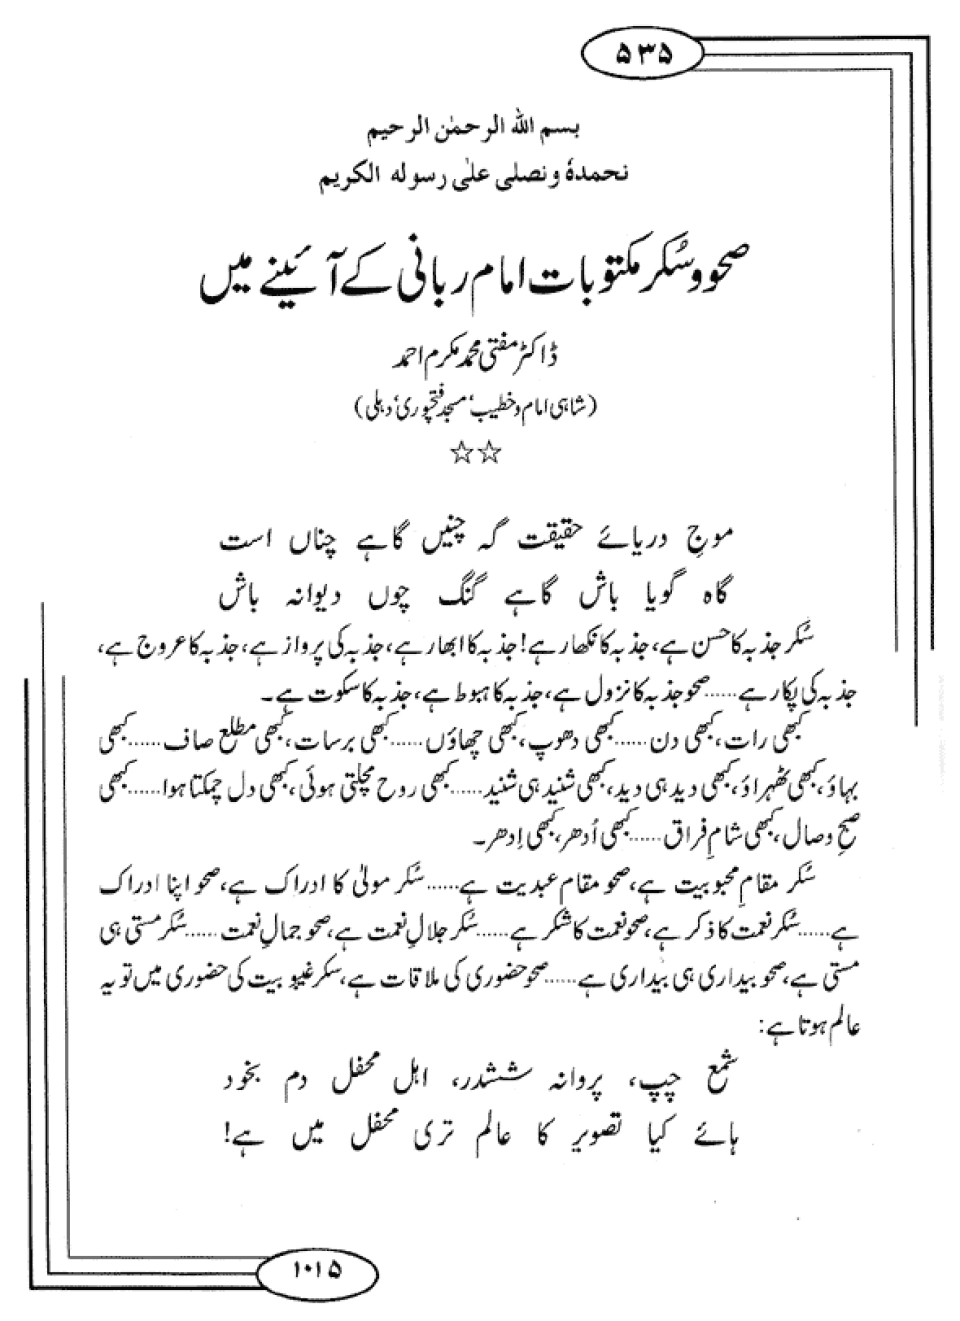 ۵۳۵
بسم الله الرحمٰن الرحیم
نحمدہٗ ونصلی علیٰ رسولہ الکریم
صحو و سُکر مکتوبات امام ربانی کے آئینے میں
ڈاکٹر مفتی محمد مکرم احمد
(شاہی امام و خطیب، مسجد فتحپوری، دہلی)
☆☆
موجِ دریائے حقیقت گہ چنیں گاہے چناں است
گاہ گویا باش گاہے گنگ چوں دیوانہ باش
سُکر جذبہ کا حسن ہے، جذبہ کا نکھار ہے! جذبہ کا ابھار ہے، جذبہ کی پرواز ہے، جذبہ کا عروج ہے،
جذبہ کی پکار ہے......صحو جذبہ کا نزول ہے، جذبہ کا ہبوط ہے، جذبہ کا سکوت ہے۔
کبھی رات، کبھی دن......کبھی دھوپ، کبھی چھاؤں......کبھی برسات، کبھی مطلع صاف......کبھی
بہاؤ، کبھی ٹھہراؤ، کبھی دید ہی دید، کبھی شنید ہی شنید......کبھی روح مچلتی ہوئی، کبھی دل چمکتا ہوا......کبھی
صبحِ وصال، کبھی شامِ فراق......کبھی اُدھر، کبھی اِدھر۔
سُکر مقامِ محبوبیت ہے، صحو مقام عبدیت ہے......سُکر مولیٰ کا ادراک ہے، صحو اپنا ادراک
ہے......سُکر نعمت کا ذکر ہے، صحو نعمت کا شکر ہے......سُکر جلالِ نعمت ہے، صحو جمالِ نعمت......سُکر مستی ہی
مستی ہے، صحو بیداری ہی بیداری ہے......صحو حضوری کی ملاقات ہے، سکر غیوبیت کی حضوری میں تو یہ
عالم ہوتا ہے:
شمع چپ، پروانہ ششدر، اہل محفل دم بخود
ہائے کیا تصویر کا عالم تری محفل میں ہے!
۱۰۱۵